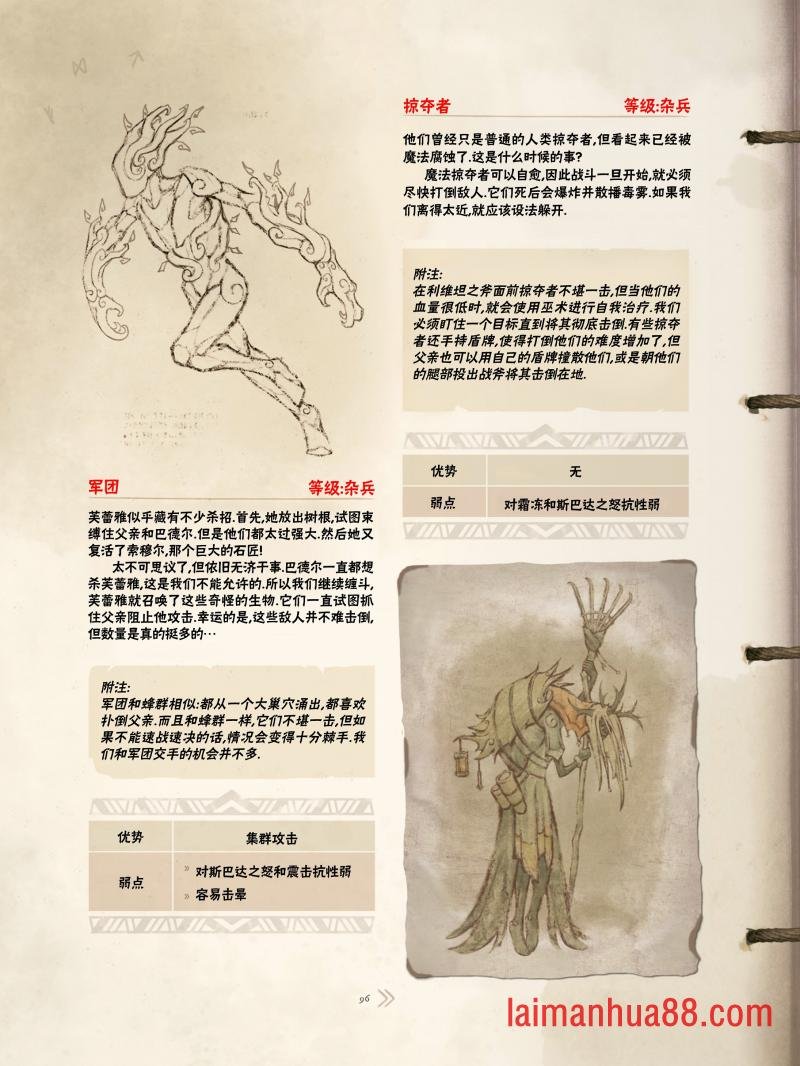 军团
等级:杂兵
芙蕾雅似乎藏有不少杀招.首先,她放出树根,试图束
缚住父亲和巴德尔.但是他们都太过强大.然后她又
复活了索穆尔,那个巨大的石匠!
太不可思议了,但依旧无济于事.巴德尔一直都想
杀芙蕾雅,这是我们不能允许的.所以我们继续缠斗,
芙蕾雅就召唤了这些奇怪的生物.它们一直试图抓
住父亲阻止他攻击.幸运的是,这些敌人并不难击倒,
但数量是真的挺多的…
附注:
军团和蜂群相似:都从一个大巢穴涌出,都喜欢
扑倒父亲.而且和蜂群一样,它们不堪一击,但如
果不能速战速决的话,情况会变得十分棘手.我
们和军团交手的机会并不多.
优势
集群攻击
弱点
» 对斯巴达之怒和震击抗性弱
» 容易击晕
掠夺者
等级:杂兵
他们曾经只是普通的人类掠夺者,但看起来已经被
魔法腐蚀了.这是什么时候的事?
魔法掠夺者可以自愈,因此战斗一旦开始,就必须
尽快打倒敌人.它们死后会爆炸并散播毒雾.如果我
们离得太近,就应该设法躲开.
附注:
在利维坦之斧面前掠夺者不堪一击,但当他们的
血量很低时,就会使用巫术进行自我治疗.我们
必须盯住一个目标直到将其彻底击倒.有些掠夺
者还手持盾牌,使得打倒他们的难度增加了,但
父亲也可以用自己的盾牌撞散他们,或是朝他们
的腿部投出战斧将其击倒在地.
优势
无
弱点
对霜冻和斯巴达之怒抗性弱
96
laimanhua88.com